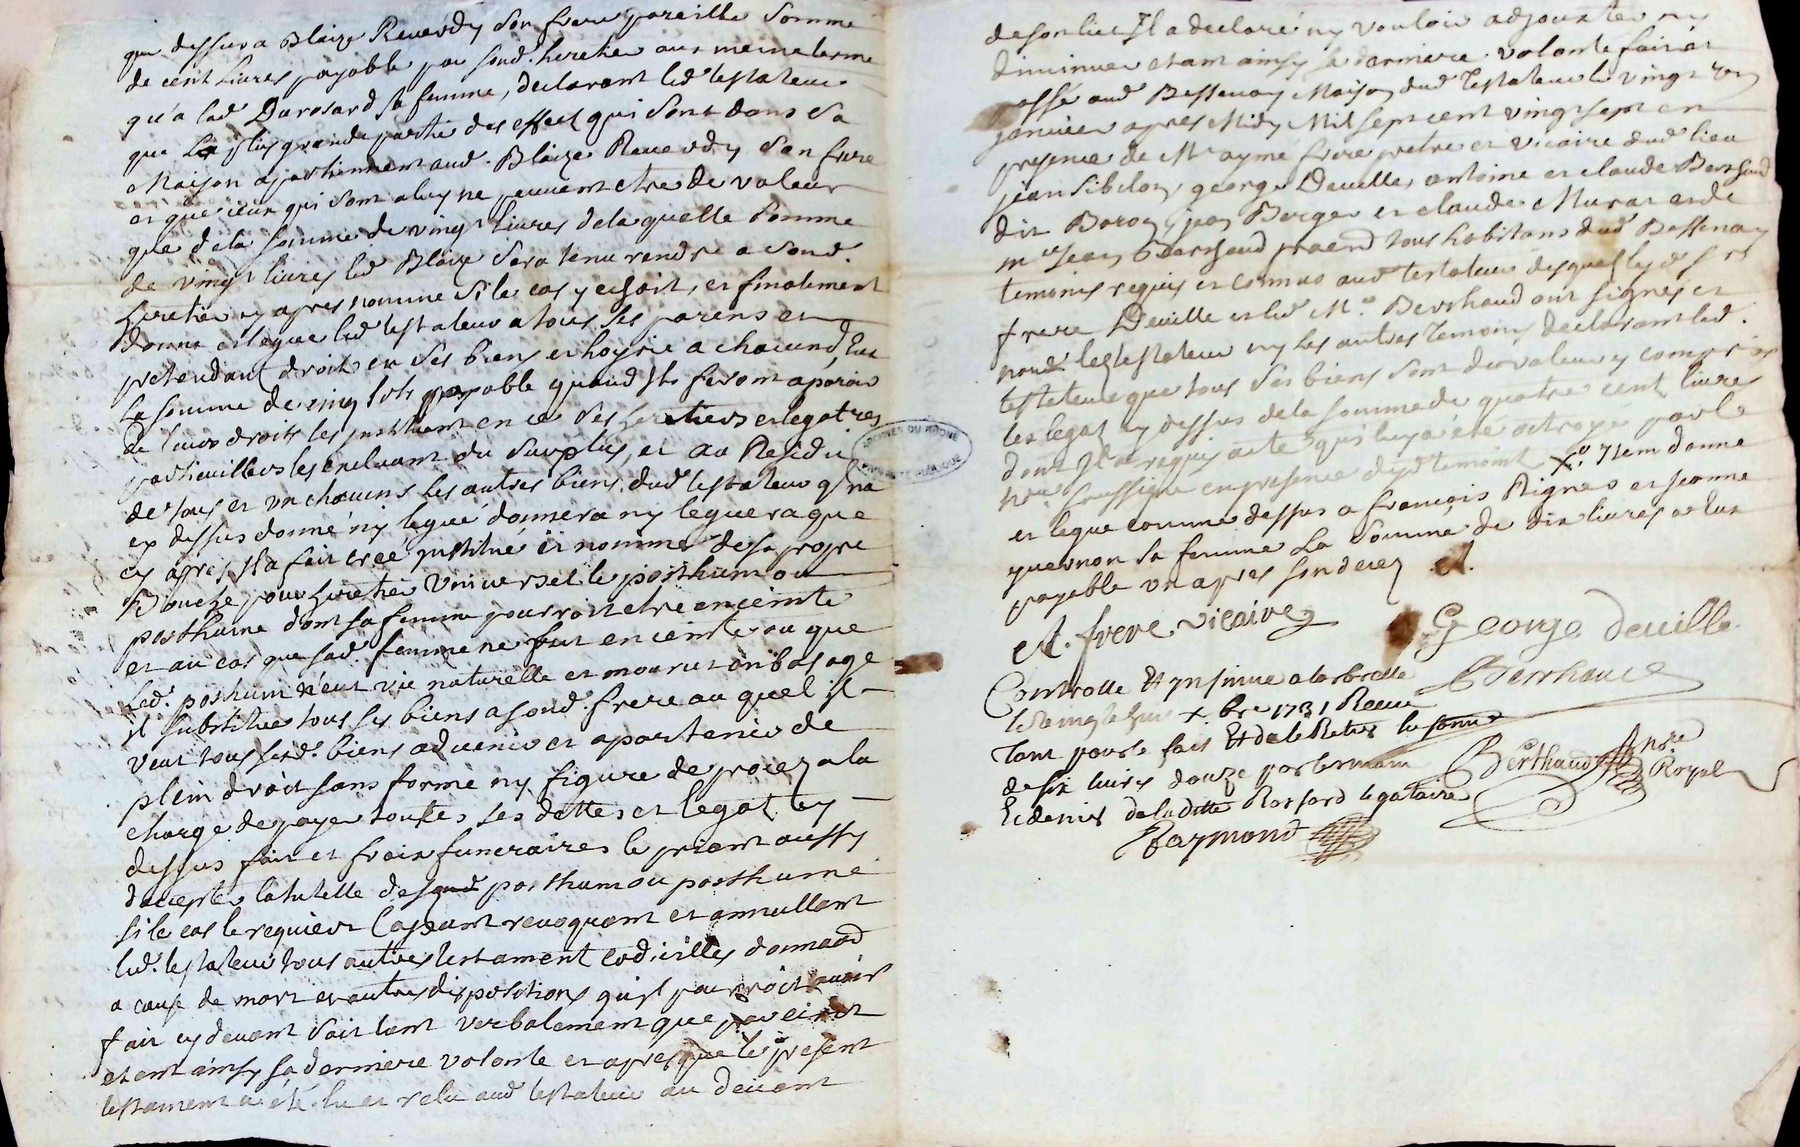 que dessus a Blaize Reverdy son frere pareille somme
de cent livres payable par sond. heretier aux meme terme
qu'a lad Durosard sa femme, declarant led testateur
que la plus grande partie des effect qui sont dans sa
Maison apartiennent aud. Blaize Reverdy son frere
et que ceux qui sont a luy ne peuvent etre de valeur
que de la somme de vingt livres de laquelle somme
de vingt livres led Blaize sera tenu rendre a sond.
heretier cy apres nomme si le cas y echoit, et finalement
donne et legue led testateur a tous ses parens et
pretendant droit en ses biens et hoyrie a chacund'Eux
la somme de cinq sols payable quand Ils feront aparoir
de leurs droits les instituant en ce ses heretiers et legat.res
particuilliers les excluant du surplus, et au Residu
de tous et un chacuns les autres biens dud testateur qu'il n'a
cy dessus donné ny legué donnera ny leguera que
cy apres Il a fait creé institué et nommé de sa propre
Bouche pour heretier universel le posthum ou
posthume dont sa femme pourroit etre enceinte
et au cas que sad. femme ne fut enceinte ou que
led. posthum n'eut vie naturelle et mourut en bas age
il substitue tous ses biens a sond. frere au quel il
veut tous sesd. biens advenir et apartenir de
plein droit sans forme ny figure de procez a la
charge de payer toutes ses dettes et legat cy
dessus fait et fraix funeraires le priant aussy
d'accepter la tutelle de sond posthum ou posthume
si le cas le requiert Cassant revoquant et annullant
led. testateur tous autres testament codicilles donnaõn
a cause de mort et autres dispositions qu'il pourroit avoir
fait cy devant soit tant verbalement que par ecrit
etant ainsy sa derniere volonte et apres que le present
testament a été lu et relu aud testateur au devant
de son lict Il a declaré ny vouloir adjouxter ny
diminuer etant ainsy sa derniere volonte fait et
passé aud Bessenay Maison dud Testateur le vingt
janvier apres Midy Mil sept cent vingt sept en
presence de Mre aymé frere pretre et vicaire dud lieu
jean Sibelon, george Deville, antoine et claude Berthaud
dit Baron, jean Berger et claude Murat et de
me jean Berthaud praend tous habitans dud Bessenay
temoins requis et connus aud testateur desquels lesd srs
frere Deville et led Me. Berthaud ont signés et
non led testateur ny les autres temoins declarant led.
testateur que tous ses biens sont de valeur y compris
les legat cy dessus de la somme de quatre cent livres
dont Il a requis acte qui luy a été octroye par le
nre soussigné en presence desd temoins Xo Item donne
et legue comme dessus a francois Rignes et jeanne
sa femme La somme de dix livres a Eux
payable un apres son decez A.
A. frere vicaire
George deville
Berthaud
Controlle Et Insinue a larbrelle
le X.bre 1731 Receu
tant pour le fait Et dele la somme
de six livres douze
Et deniers de laditte Rossard legataire
Raymond
Berthaud Nore Royal
ARCHIVES DU RHONE